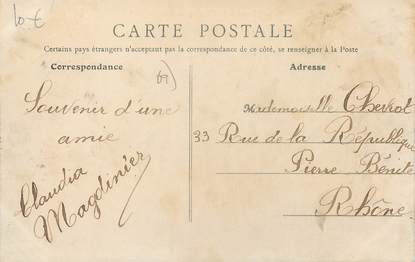 10 €
CARTE POSTALE
Certains pays étrangers n'acceptant pas la correspondance de ce côté, se renseigner à la Poste
Correspondance
69)
Adresse
Souvenir d'une
amie
Claudia
Magdinier
Mademoiselle Chevrot
33 Rue de la République
Pierre Bénite
Rhône